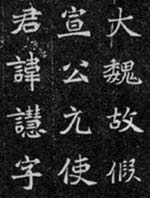 大魏故假
宣公亢使
君諱譿字